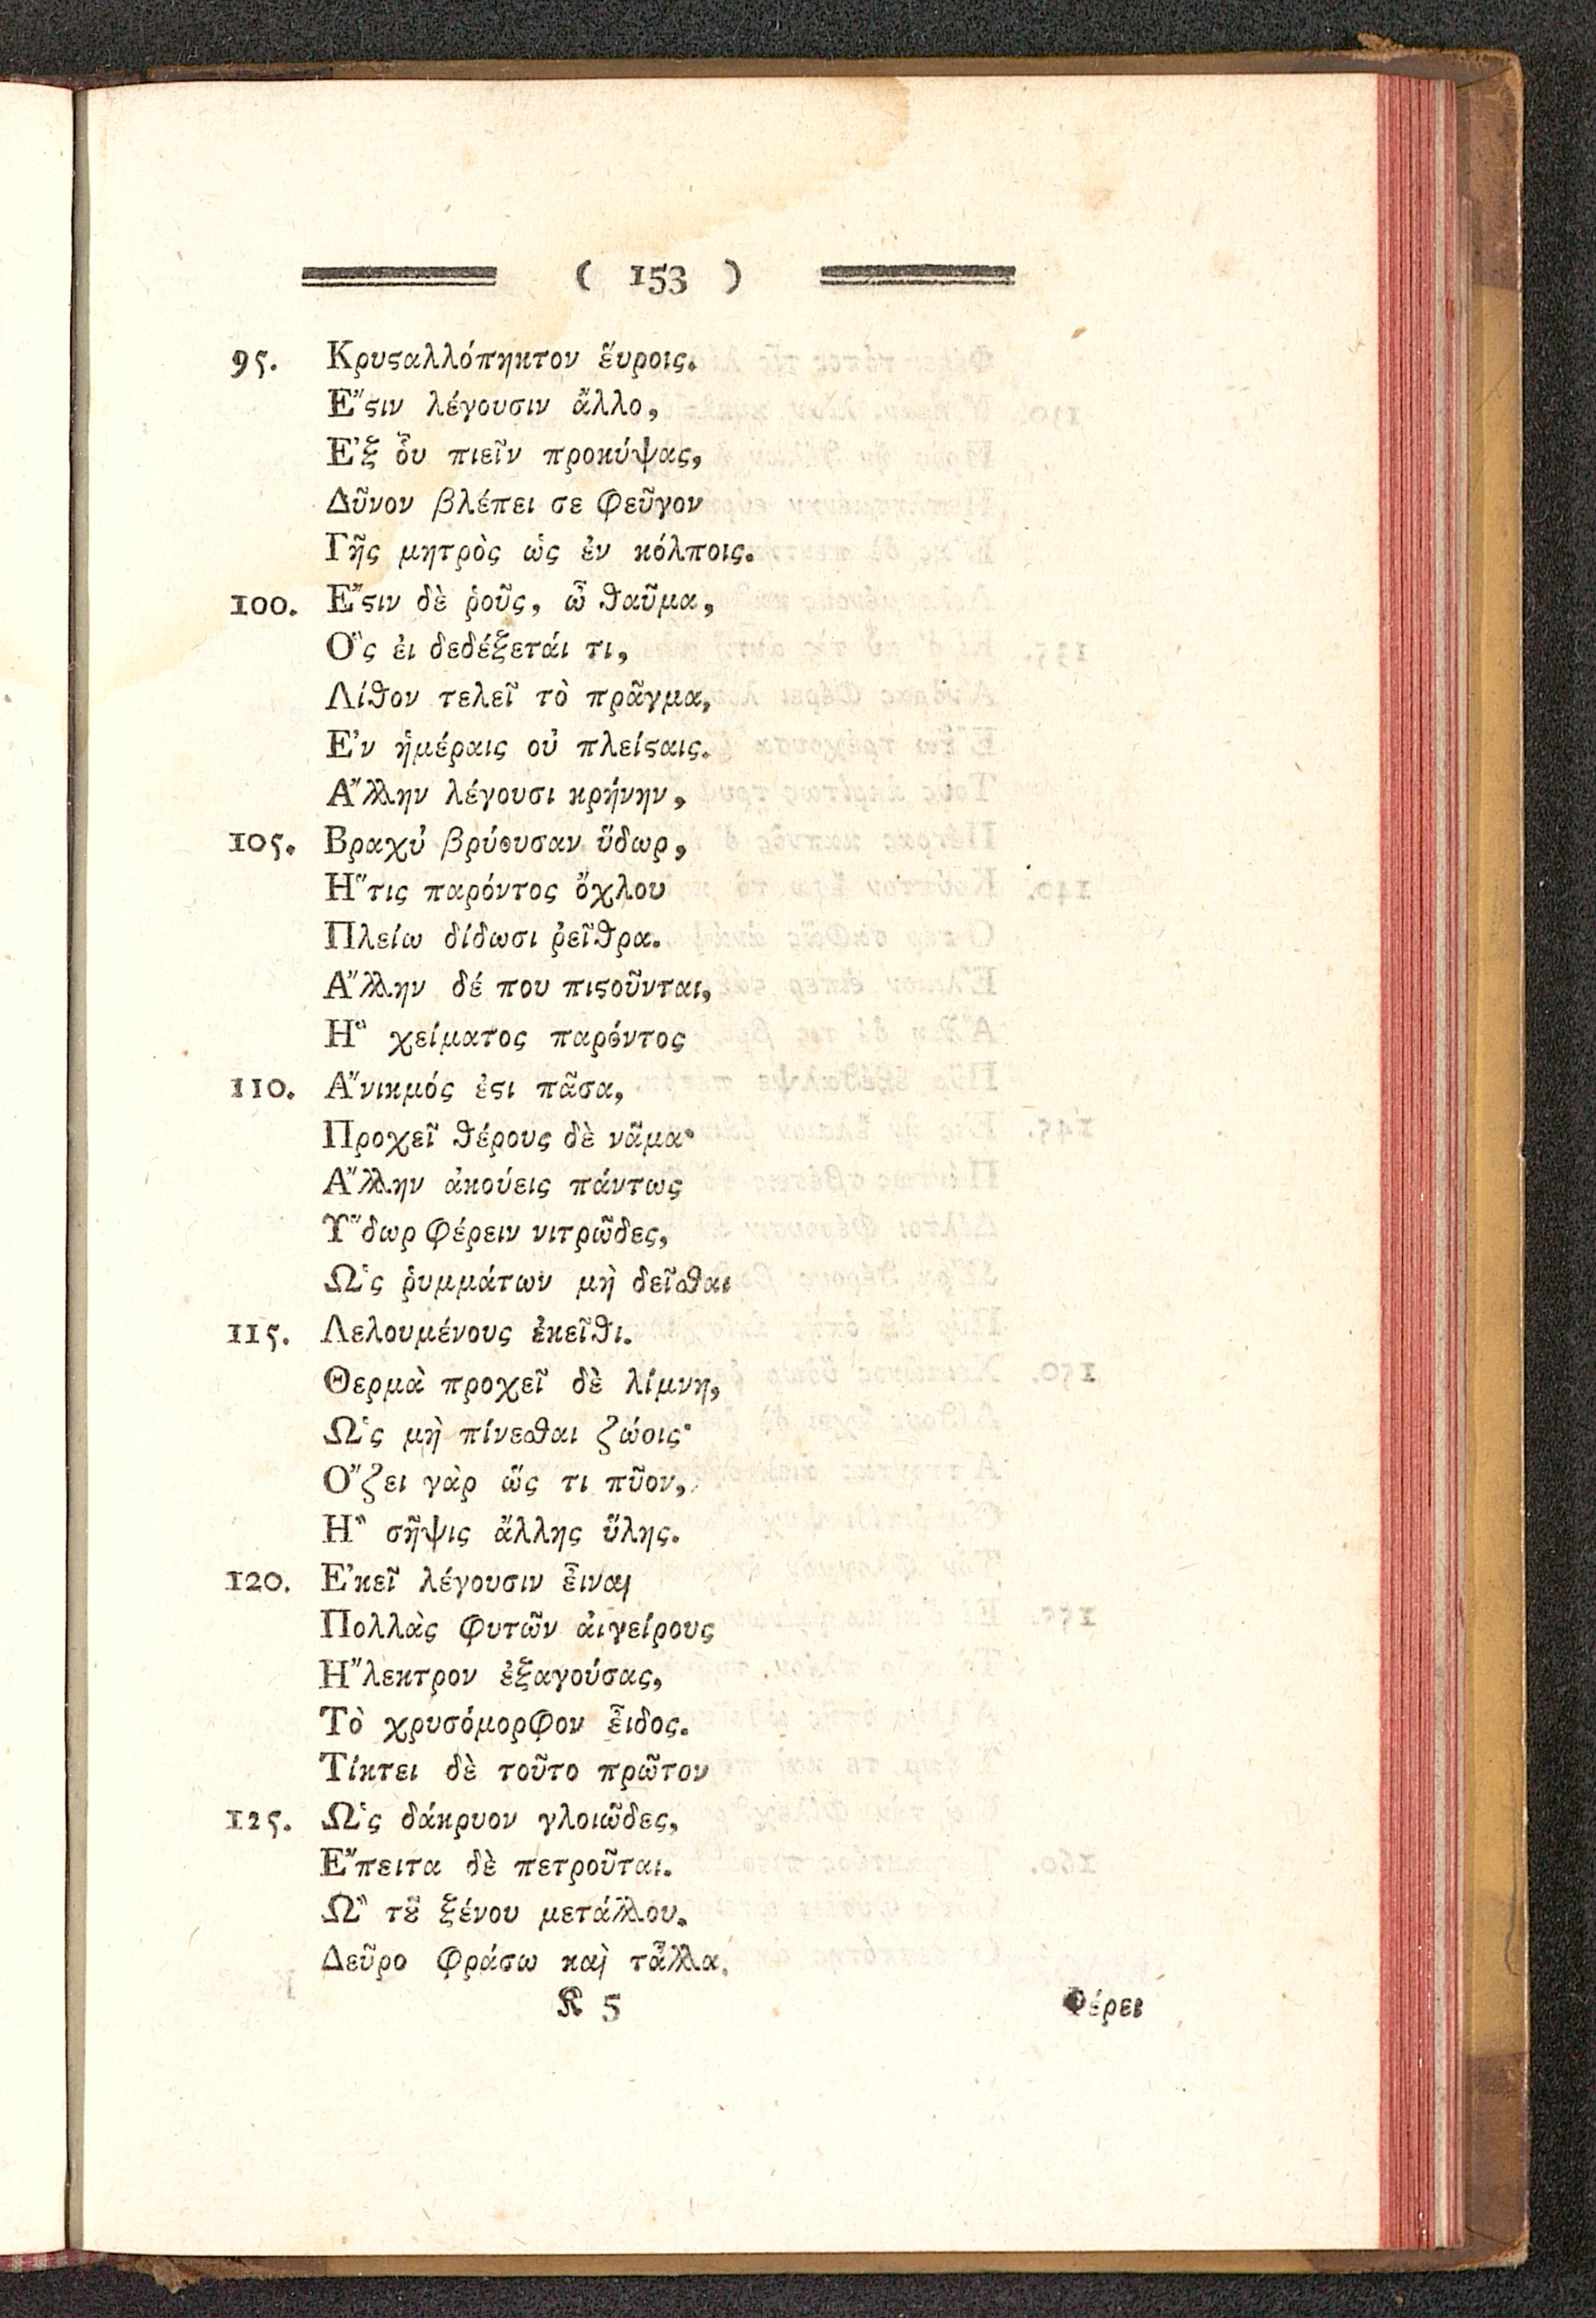 ( 153 )
95. Κρυϛαλλόπηκτον ἕυροις.
Ἔϛιν λέγουσιν ἄλλο,
Ἐξ ὅυ πιεῖν προκύψας,
Δῦνον βλέπει σε φεῦγον
Γῆς μητρὸς ὡς ἐν κόλποις.
100. Ἔϛιν δὲ ῥοῦς, ὦ θαῦμα,
Ὃς ἐι δεδέξεταί τι,
Λίθον τελεῖ τὸ πρᾶγμα,
Ἐν ἡμέραις οὐ πλείϛαις.
Ἄλλην λέγουσι κρήνην,
105. Βραχὺ βρύουσαν ὕδωρ,
Ἥτις παρόντος ὄχλου
Πλείω δίδωσι ῥεῖθρα.
Ἄλλην δέ που πιϛοῦνται,
Ἣ χείματος παρόντος
110. Ἄνικμός ἐϛι πᾶσα,
Προχεῖ θέρους δὲ νᾶμα·
Ἄλλην ἀκούεις πάντως
Ὕδωρ φέρειν νιτρῶδες,
Ὡς ῥυμμάτων μὴ δεῖσθαι
115. Λελουμένους ἐκεῖθι.
Θερμὰ προχεῖ δὲ λίμνη,
Ὡς μὴ πίνεσθαι ζώοις·
Ὄζει γὰρ ὥς τι πῦον,
Ἢ σῆψις ἄλλης ὕλης.
120. Ἐκεῖ λέγουσιν ἖ιναι
Πολλὰς φυτῶν ἀιγείρους
Ἤλεκτρον ἐξαγούσας,
Τὸ χρυσόμορφον ἖ιδος.
Τίκτει δὲ τοῦτο πρῶτον
125. Ὡς δάκρυον γλοιῶδες,
Ἔπειτα δὲ πετροῦται.
Ὢ τȣ͂ ξένου μετάλλου.
Δεῦρο φράσω καὶ τἆλλα.
K 5 Φέρει